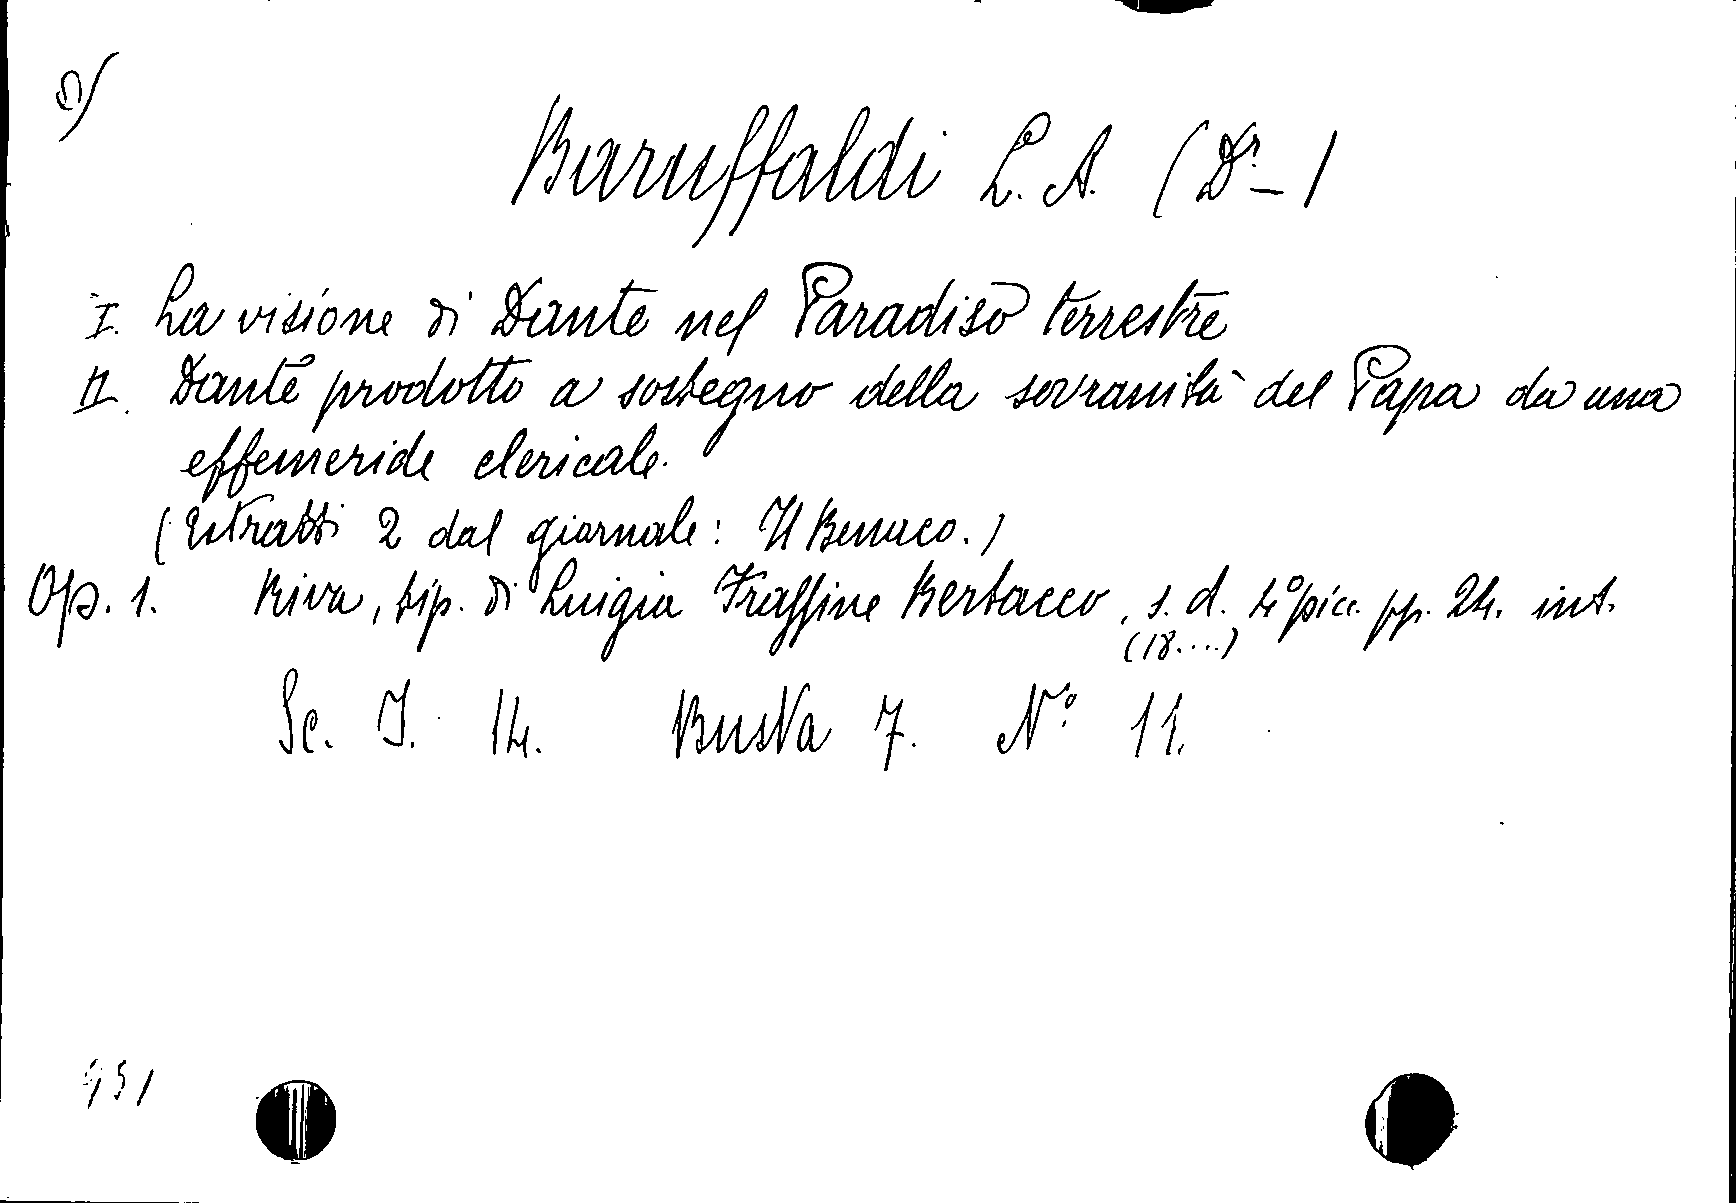 Baruffaldi L. A. (Dr. –)
I. La visione di Dante nel Paradiso terrestre
II. Dante prodotto a sostegno della sovranità del Papa da una
effemeride clericale.
(Estratti 2 dal giornale: Il Benaco.)
Op. 1. Riva, tip. di Luigia Traffine Bertacco, s. d. 4º picc. pp. 24. int.
(18....)
Sc. I. 14. Busta 7. Nº 11.
951